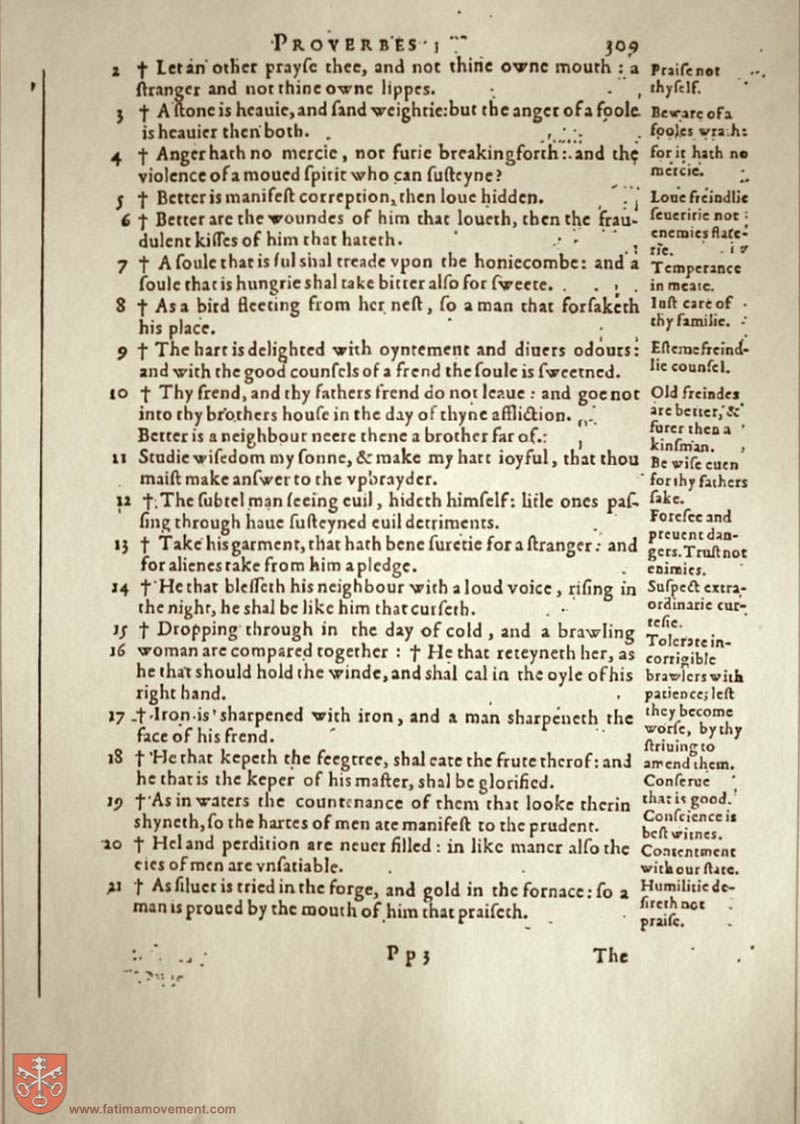 PROVERBES
309
2 † Let an other prayſe thee, and not thine owne mouth : a
ſtranger and not thine owne lippes.
3 † A ſtone is heauie, and ſand weightie: but the anger of a foole
is heauier then both.
4 † Anger hath no mercie, nor furie breaking forth: and the
violence of a moued ſpirit who can ſuſteyne?
5 † Better is manifeſt correption, then loue hidden.
6 † Better are the woundes of him that loueth, then the frau-
dulent kiſſes of him that hateth.
7 † A ſoule that is ful shal treade vpon the honiecombe: and a
ſoule that is hungrie shal take bitter alſo for ſweete.
8 † As a bird fleeting from her neſt, ſo a man that forſaketh
his place.
9 † The hart is delighted with oyntement and diuers odours:
and with the good counſels of a frend the ſoule is ſweetned.
10 † Thy frend, and thy fathers frend do not leaue: and goe not
into thy brothers houſe in the day of thyne affliction.
Better is a neighbour neere thene a brother far of.
11 Studie wiſedom my ſonne, & make my hart ioyful, that thou
maiſt make anſwer to the vpbrayder.
12 † The ſubtel man ſeeing euil, hideth himſelf: litle ones paſ-
ſing through haue ſuſteyned euil detriments.
13 † Take his garment, that hath bene ſuretie for a ſtranger: and
for alienes take from him a pledge.
14 † He that bleſſeth his neighbour with a loud voice, riſing in
the night, he shal be like him that curſeth.
15 † Dropping through in the day of cold, and a brawling
16 woman are compared together : † He that reteyneth her, as
he that should hold the winde, and shal cal in the oyle of his
right hand.
17 † Iron is sharpened with iron, and a man sharpeneth the
face of his frend.
18 † He that kepeth the feegtree, shal eate the frute therof: and
he that is the keper of his maſter, shal be glorified.
19 † As in waters the countenance of them that looke therin
shyneth, ſo the hartes of men are manifeſt to the prudent.
20 † Hel and perdition are neuer filled: in like maner alſo the
eies of men are vnſatiable.
21 † As ſiluer is tried in the forge, and gold in the fornace: ſo a
man is proued by the mouth of him that praiſeth.
Praiſe not
thyſelf.
Beware of a
fooles wrath:
for it hath no
mercie.
Loue freindlie
ſeueritie not
enemies flate-
rie.
Temperance
in meate.
Iuſt care of
thy familie.
Eſteme freind-
lie counſel.
Old freindes
are better, &
ſurer then a
kinſman.
Be wiſe euen
for thy fathers
ſake.
Foreſee and
preuent dan-
gers. Truſt not
enimies.
Suſpect extra-
ordinarie cur-
teſie.
Tolerate in-
corrigible
brawlers with
patience; leſt
they become
worſe, by thy
ſtriuing to
amend them.
Conſerue
that is good.
Conſcience is
beſt witnes.
Contentment
with our ſtate.
Humilitie de-
ſireth not
praiſe.
Pp3
The
www.fatimamovement.com